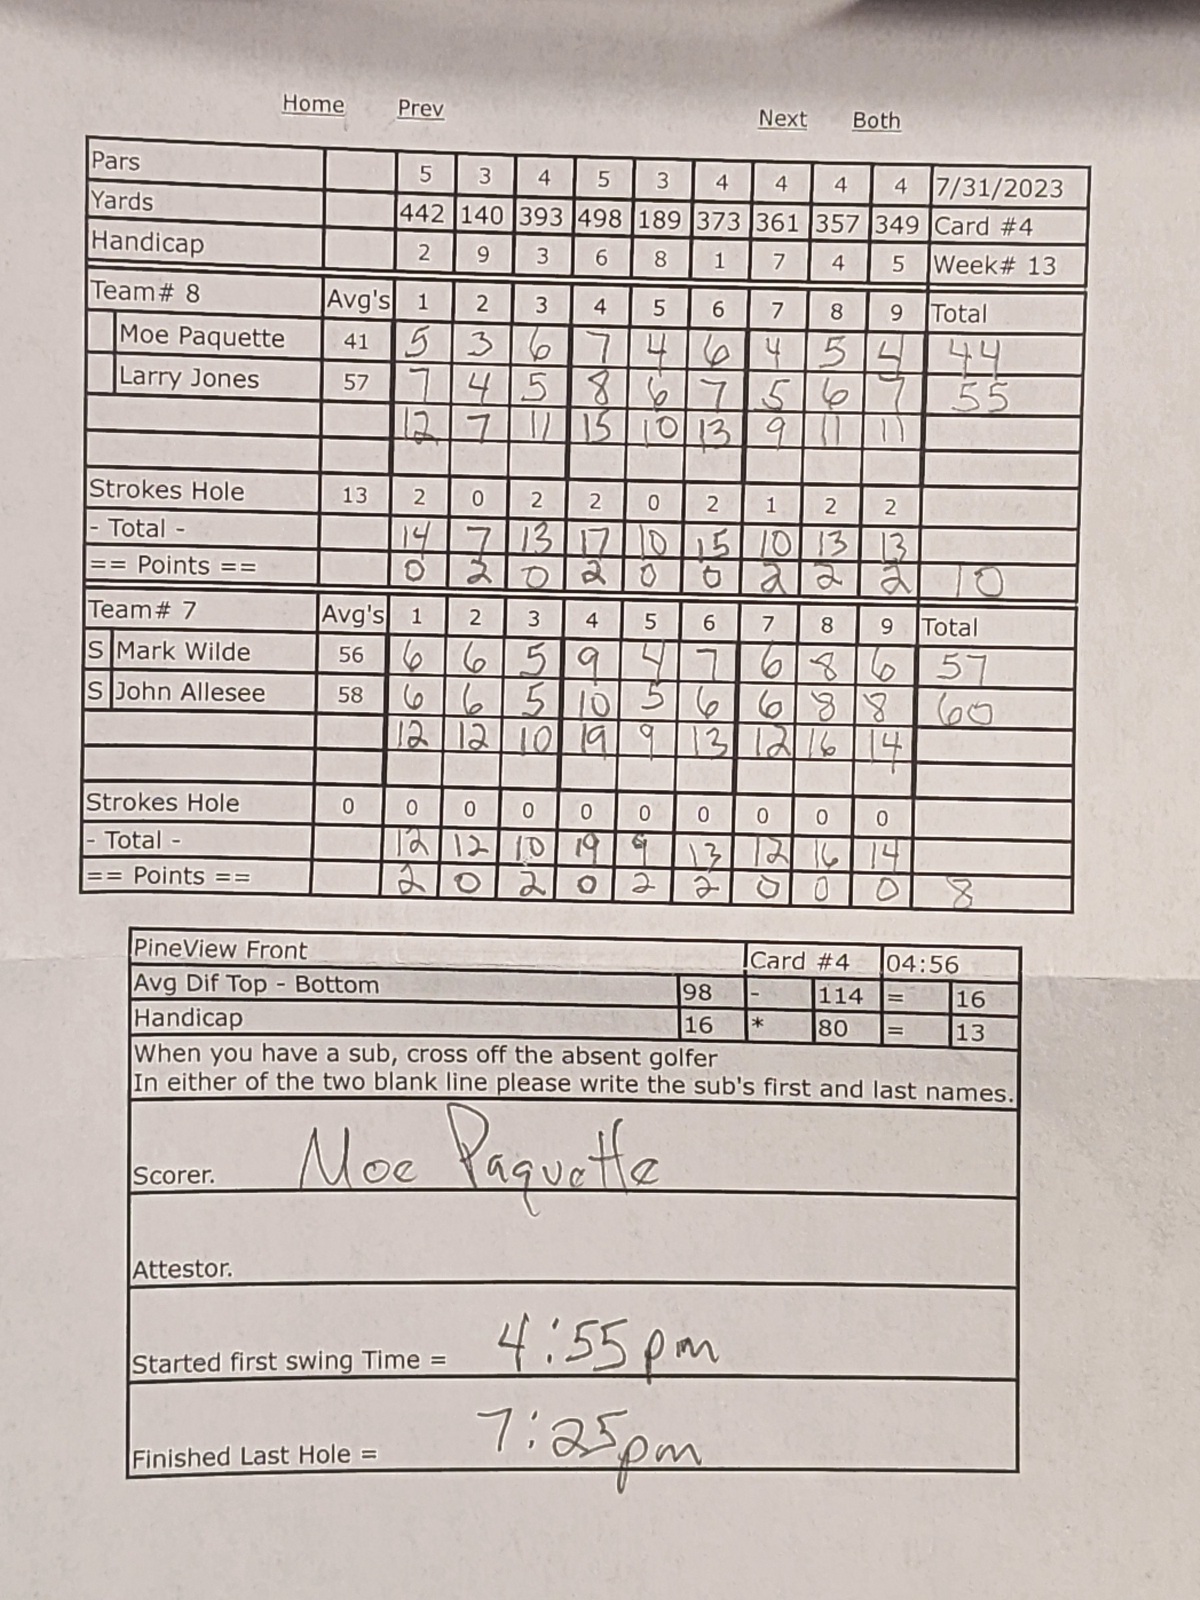 Home Prev Next Both
Pars 5 3 4 5 3 4 4 4 4 7/31/2023
Yards 442 140 393 498 189 373 361 357 349 Card #4
Handicap 2 9 3 6 8 1 7 4 5 Week# 13
Team# 8 Avg's 1 2 3 4 5 6 7 8 9 Total
Moe Paquette 41 5 3 6 7 4 6 4 5 4 44
Larry Jones 57 7 4 5 8 6 7 5 6 7 55
12 7 11 15 10 13 9 11 11
Strokes Hole 13 2 0 2 2 0 2 1 2 2
- Total - 14 7 13 17 10 15 10 13 13
== Points == 0 2 0 2 0 0 2 2 2 10
Team# 7 Avg's 1 2 3 4 5 6 7 8 9 Total
S Mark Wilde 56 6 6 5 9 4 7 6 8 6 57
S John Allesee 58 6 6 5 10 5 6 6 8 8 60
12 12 10 19 9 13 12 16 14
Strokes Hole 0 0 0 0 0 0 0 0 0 0
- Total - 12 12 10 19 9 13 12 16 14
== Points == 2 0 2 0 2 2 0 0 0 8
PineView Front Card #4 04:56
Avg Dif Top - Bottom 98 - 114 = 16
Handicap 16 * 80 = 13
When you have a sub, cross off the absent golfer
In either of the two blank line please write the sub's first and last names.
Scorer. Moe Paquette
Attestor.
Started first swing Time = 4:55pm
Finished Last Hole = 7:25pm